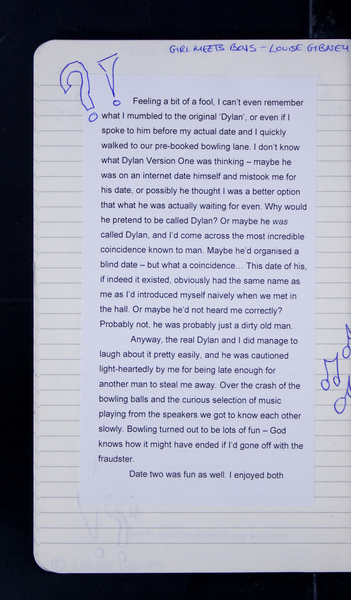 GIRL MEETS BOYS – LOUISE GIBNEY
?!
Feeling a bit of a fool, I can't even remember
what I mumbled to the original 'Dylan', or even if I
spoke to him before my actual date and I quickly
walked to our pre-booked bowling lane. I don't know
what Dylan Version One was thinking – maybe he
was on an internet date himself and mistook me for
his date, or possibly he thought I was a better option
that what he was actually waiting for even. Why would
he pretend to be called Dylan? Or maybe he was
called Dylan, and I'd come across the most incredible
coincidence known to man. Maybe he'd organised a
blind date – but what a coincidence... This date of his,
if indeed it existed, obviously had the same name as
me as I'd introduced myself naively when we met in
the hall. Or maybe he'd not heard me correctly?
Probably not, he was probably just a dirty old man.
Anyway, the real Dylan and I did manage to
laugh about it pretty easily, and he was cautioned
light-heartedly by me for being late enough for
another man to steal me away. Over the crash of the
bowling balls and the curious selection of music
playing from the speakers we got to know each other
slowly. Bowling turned out to be lots of fun – God
knows how it might have ended if I'd gone off with the
fraudster.
Date two was fun as well. I enjoyed both